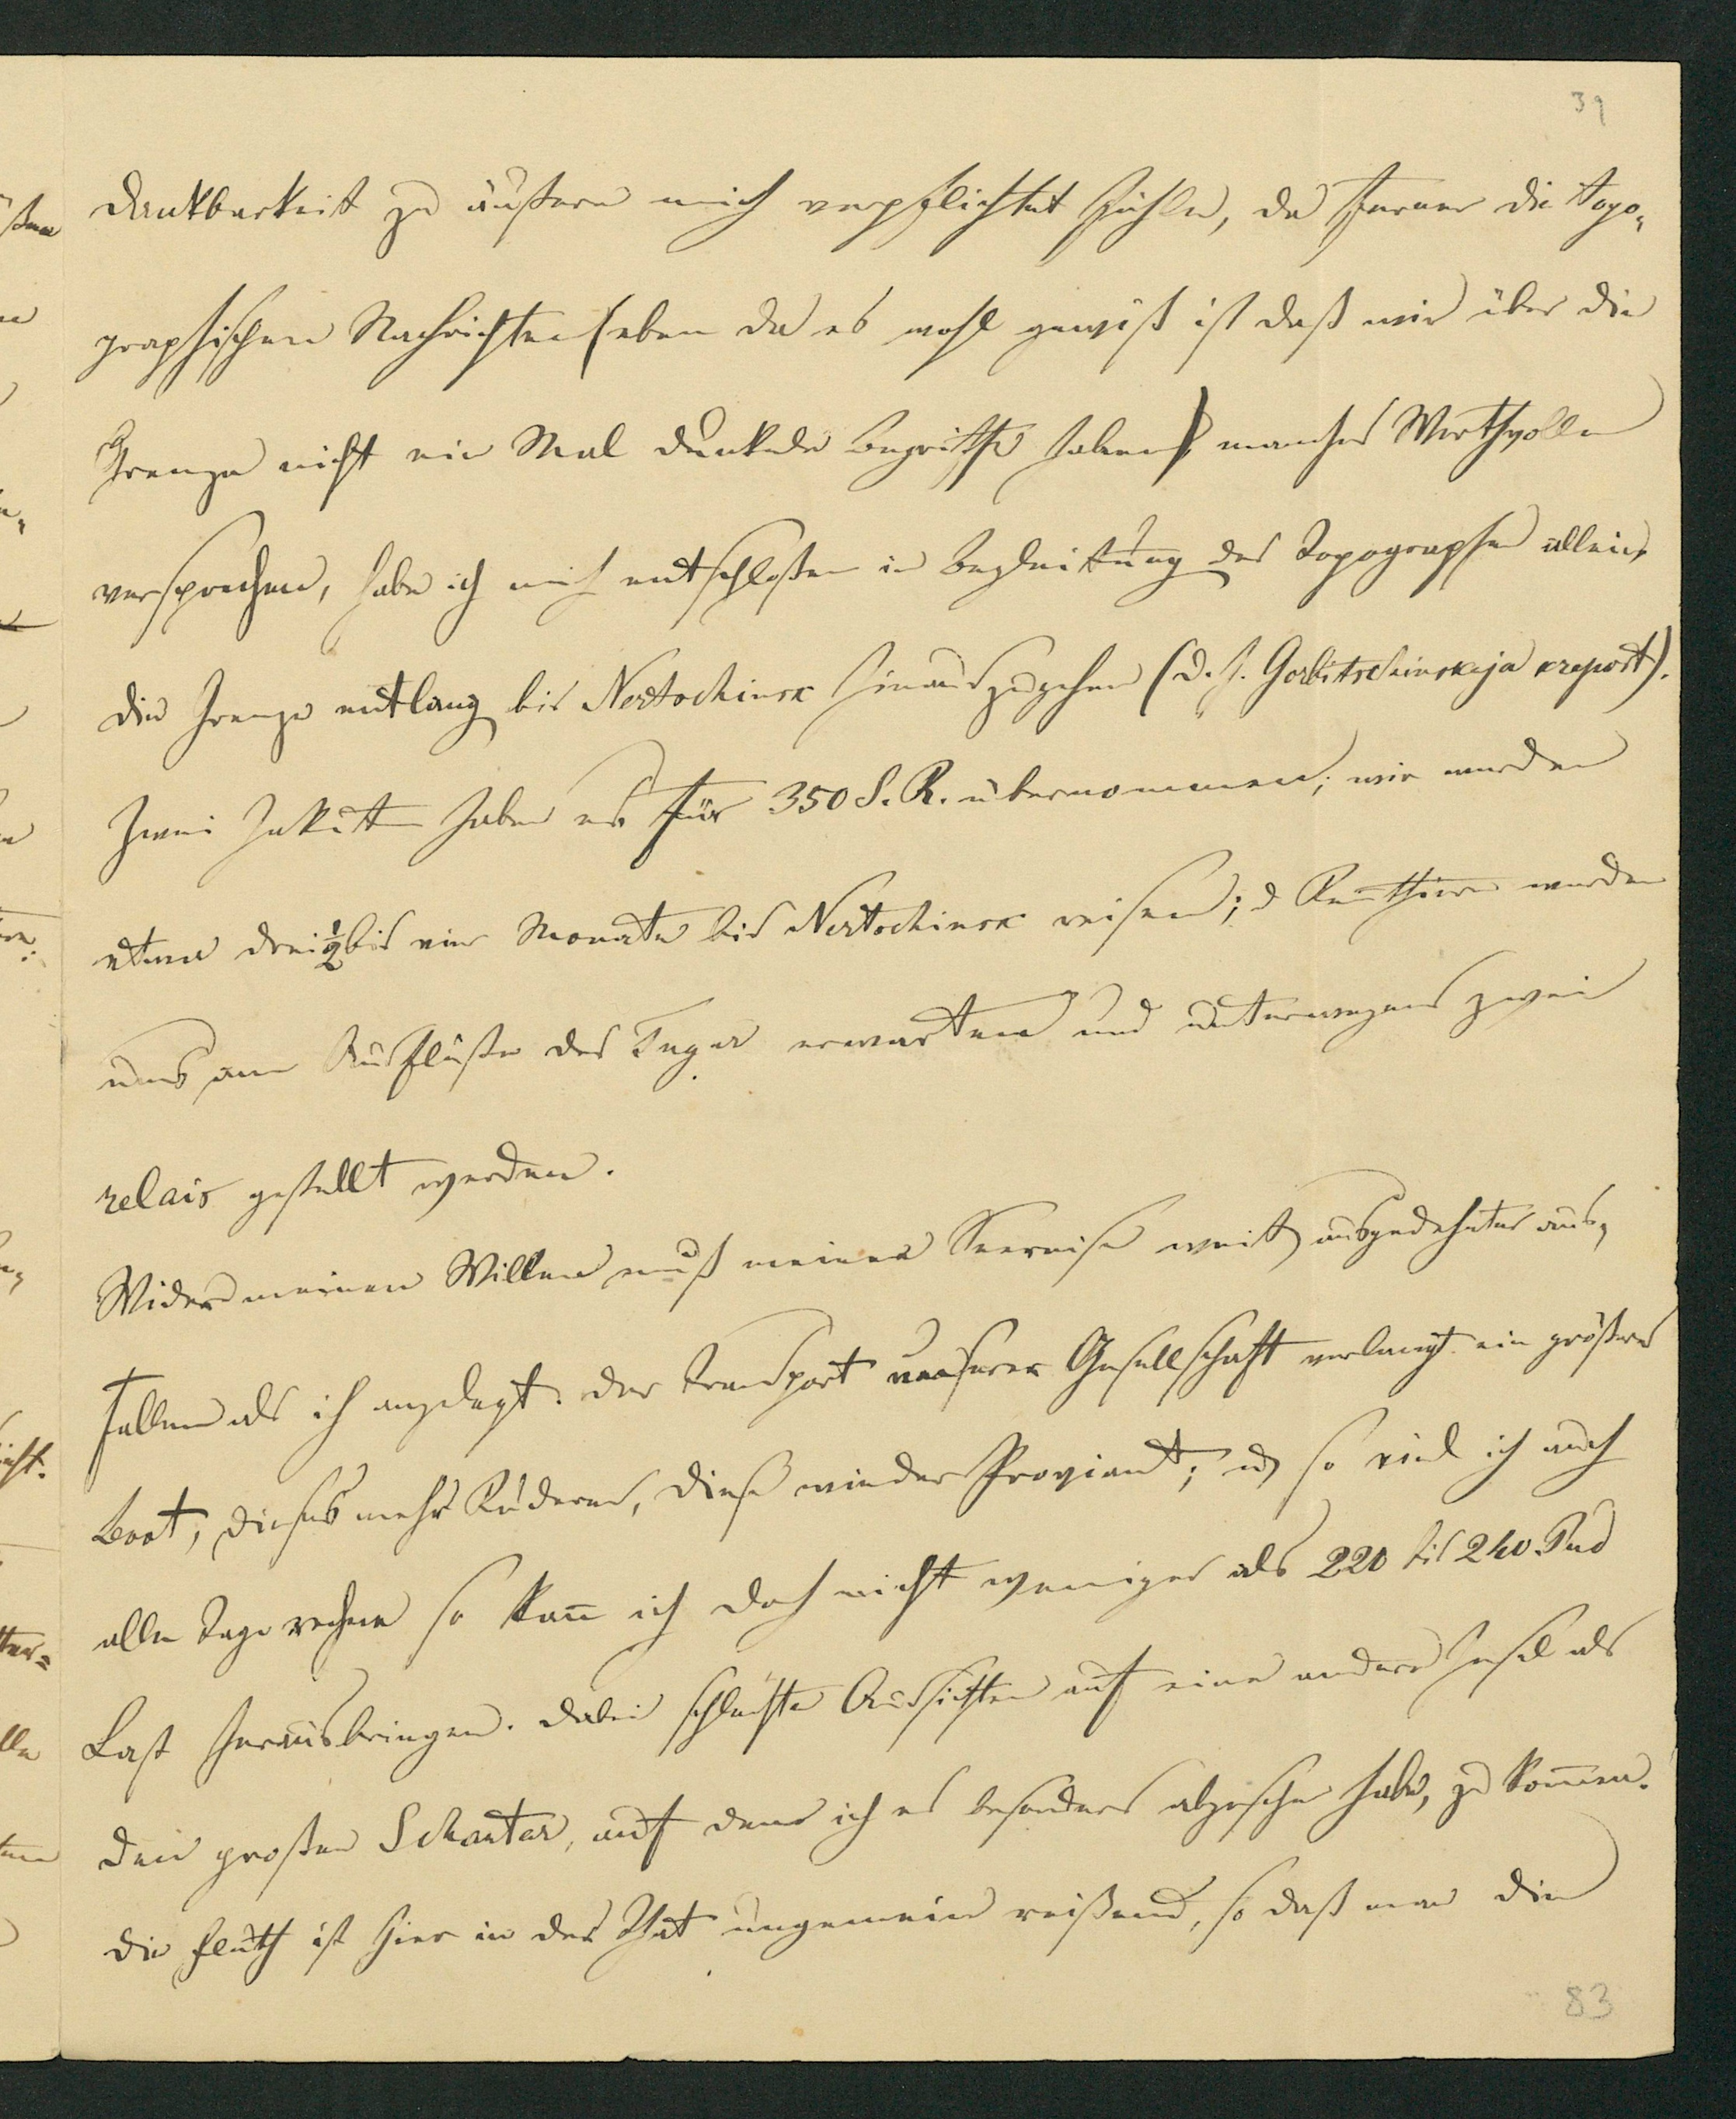 39
Dankbarkeit zu äußern mich verpflichtet fühle, da ferner die topo-
graphischen Nachrichten (eben da es wohl gewiß ist daß wir über die
Grenze nicht ein Mal dunkele Begriffe haben) manches Werthvolle
versprechen, habe ich mich entschloßen in Begleitung des Topographen allein,
die Grenze entlang bis Nertschinsk hinauszugehen (d. h. Gorbitschinskaja krepost).
Zwei Jakuten haben es für 350 S. R. übernommen; wir werden
etwa drei ½ bis vier Monate bis Nertschinsk reisen; d Rennthiere werden
uns am Ausfluße des Tugur erwarten und unterweges zwei
relais gestellt werden.
Wider meinen Willen muß meine Seereise weit ausgedehnter aus-
fallen als ich angelegt. Der Transport unserer Gesellschaft verlangt ein größeres
Boot, dieses mehr Ruderer, diese wieder Proviant; u so viel ich auch
alle Tage rechne so kann ich doch nicht weniger als 220 bis 240 Pud
Last herausbringen. Dabei schlechte Aussichten auf eine andere Insel als
den großen Schantar, auf den ich es besonders abgesehn habe, zu kommen.
Die Fluth ist hier in der That ungemein reißend, so daß man die
83